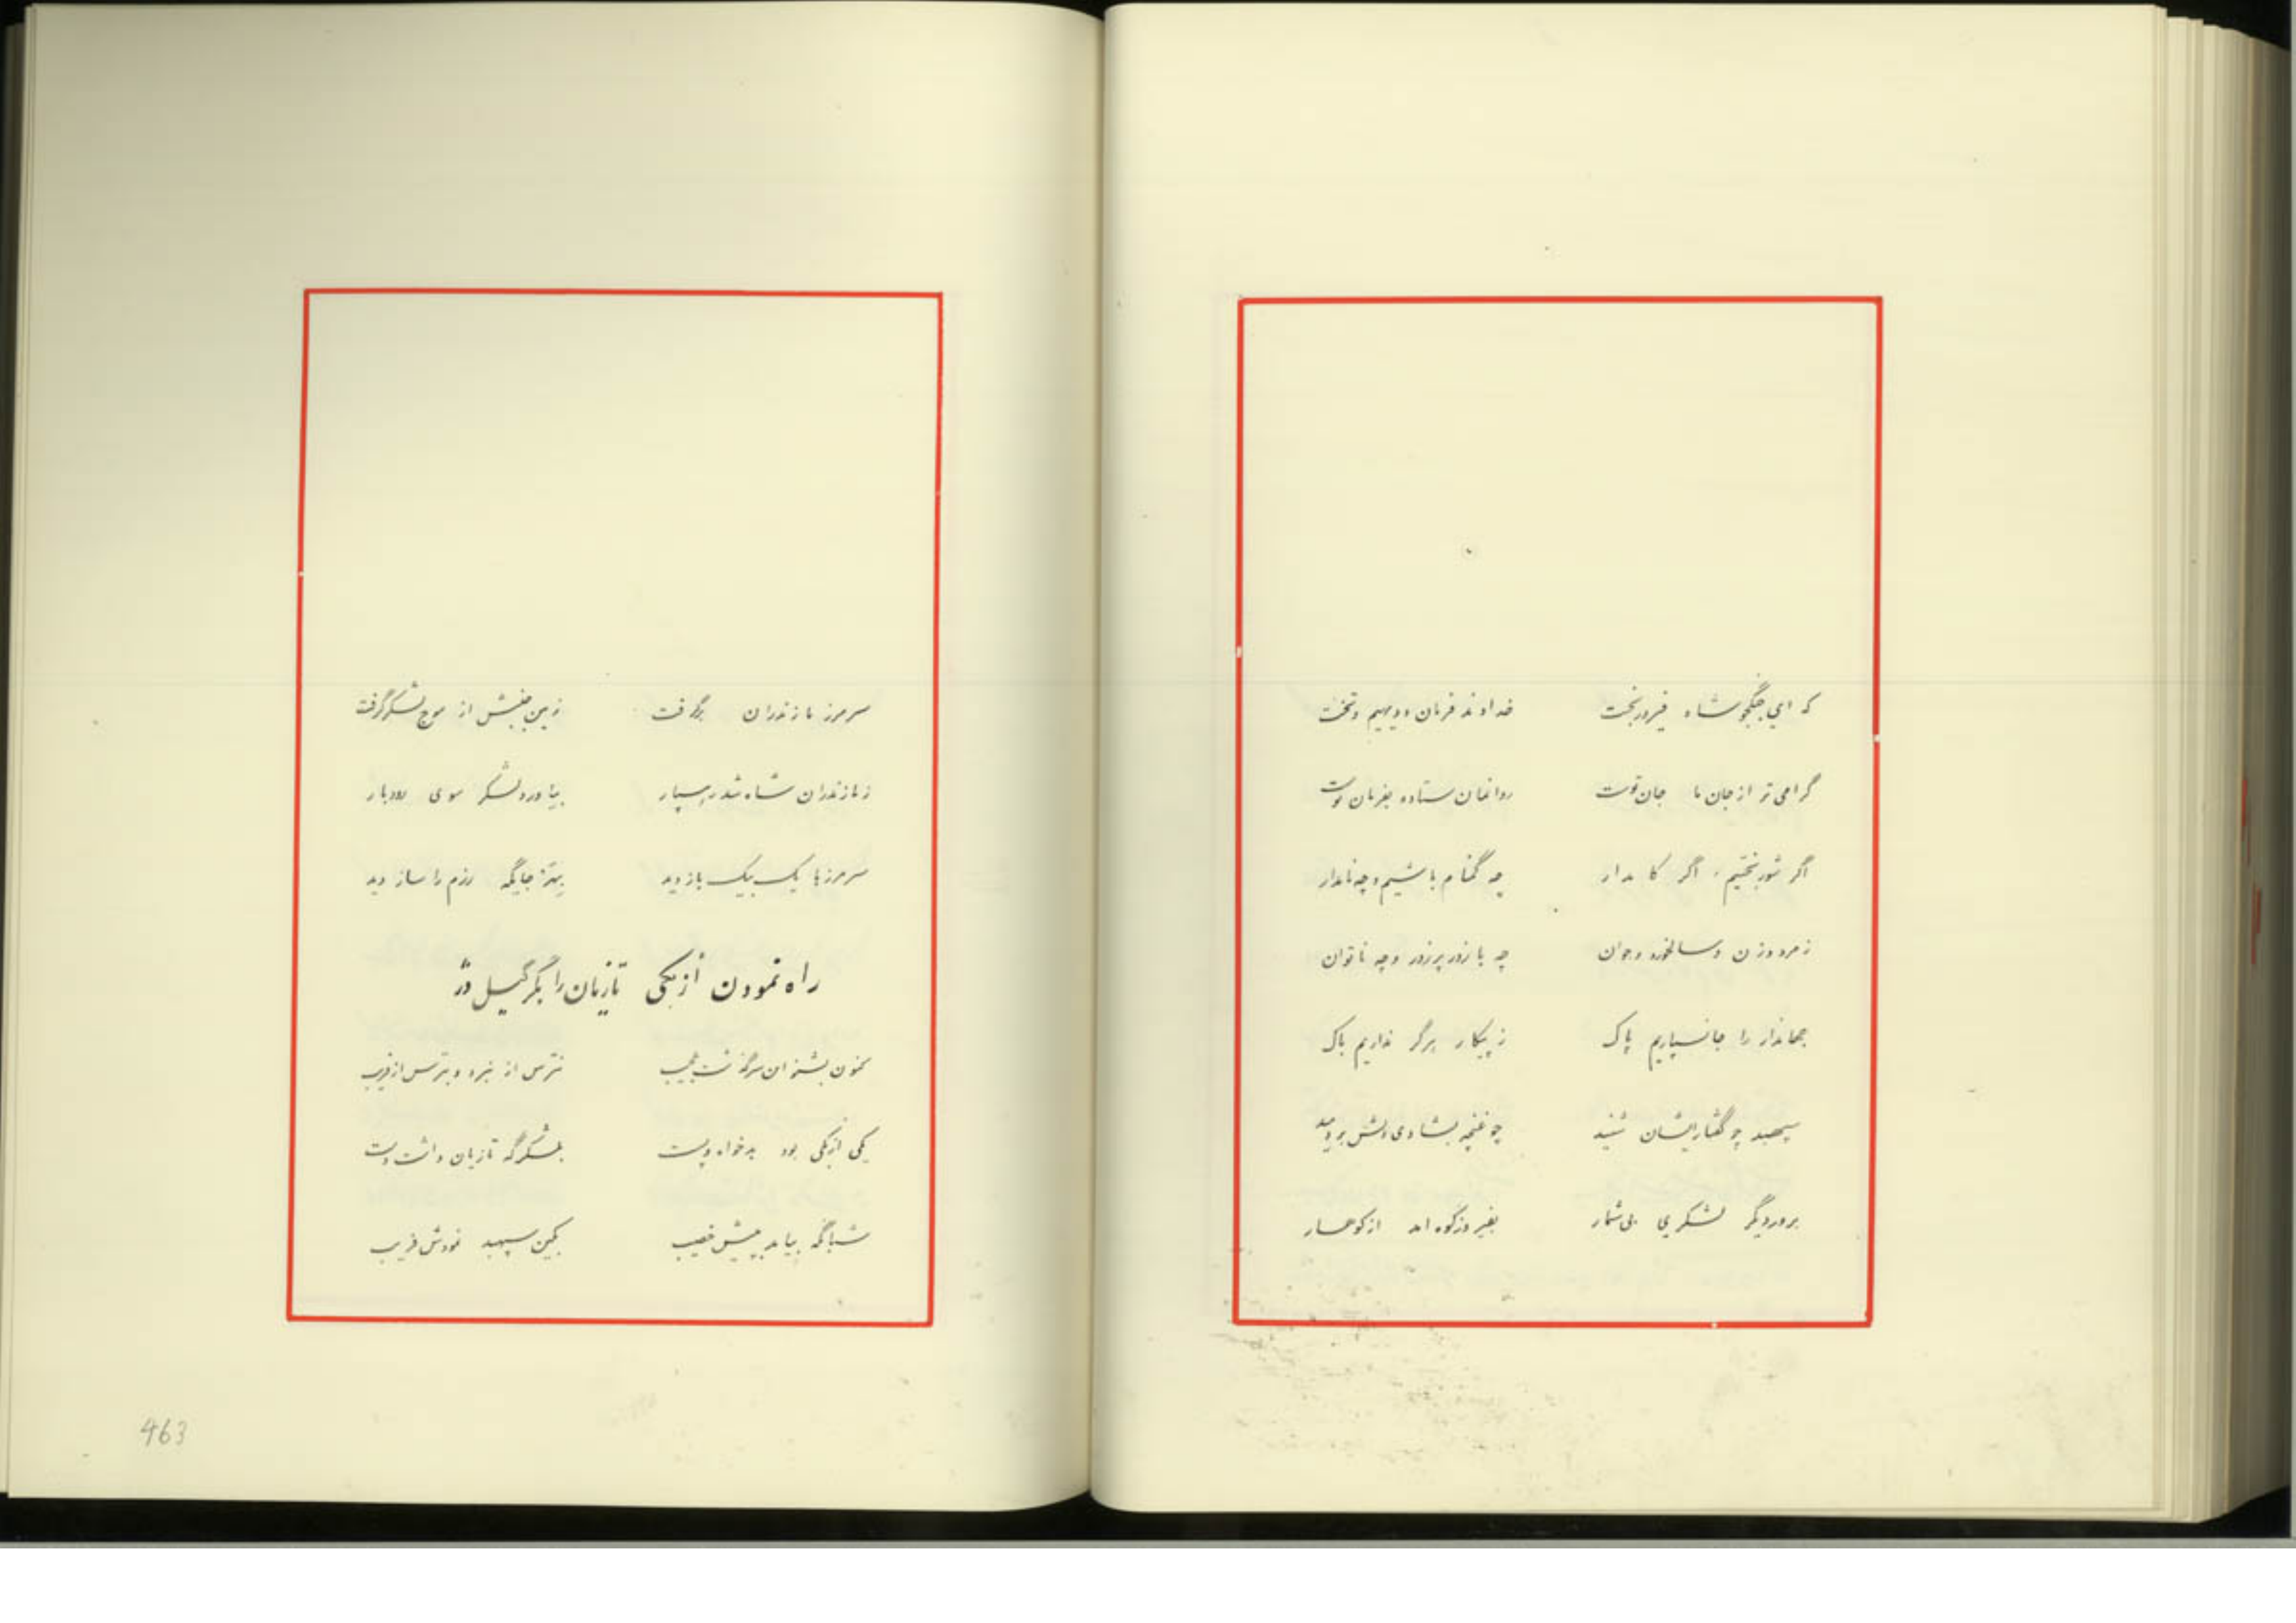 که ای جنگجو شاه فیروزبخت خداوند فرمان و دیهیم و تخت
گرامی تر از جان ما جان توست روانمان ستاده بفرمان توست
اگر شوربختیم، اگر کامدار چه گمنام باشیم و چه نامدار
ز مرد و زن و سالخورد و جوان چه با زور پرزور و چه ناتوان
جهاندار را جانسپاریم پاک ز پیکار هرگز نداریم باک
سپهبد چو گفتار ایشان شنید چو غنچه بشادی دلش بردمید
بروردیگر لشکری بی شمار بفیروزکوه امد از کوهسار
سر مرز مازندران برگرفت زمین جنبش از موج لشکر گرفت
ز مازندران شاه شد رهسپار بیاورد لشکر سوی رودبار
سر مرزها یک بیک باز دید بهر جایگه رزم را ساز دید
راه نمودن ازبکی تازیان را بگرگیل دژ
کنون بشنو ان سرگذشت عجیب مترس از نبرد و بترس از فریب
یکی ازبکی بود بدخواه و پست بلشکرگه تازیان داشت دست
شبانگه بیامد به پیش خصیب بکین سپهبد نمودش فریب
463